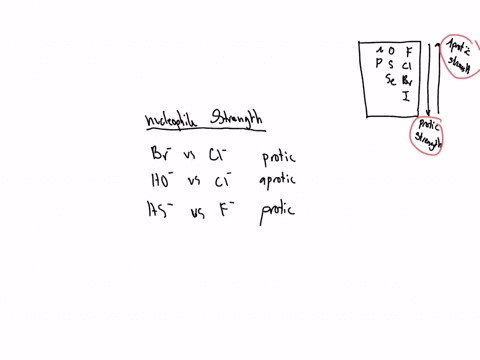 nucleophile Strength
Br⁻ vs Cl⁻ protic
HO⁻ vs Cl⁻ aprotic
HS⁻ vs F⁻ protic
N O F
P S Cl
Se Br
I
Aprotic
strength
protic
strength